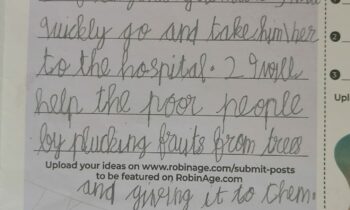 quickly go and take him/her
to the hospital. 2 I will
help the poor people
by plucking fruits from trees
Upload your ideas on www.robinage.com/submit-posts
to be featured on RobinAge.com
and giving it to them.
2
3
Upl